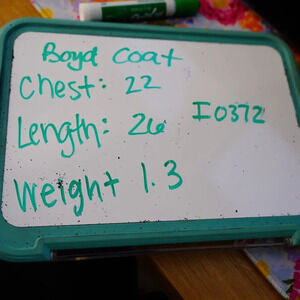 Boyd Coat
Chest: 22
Length: 26 I0372
Weight 1.3